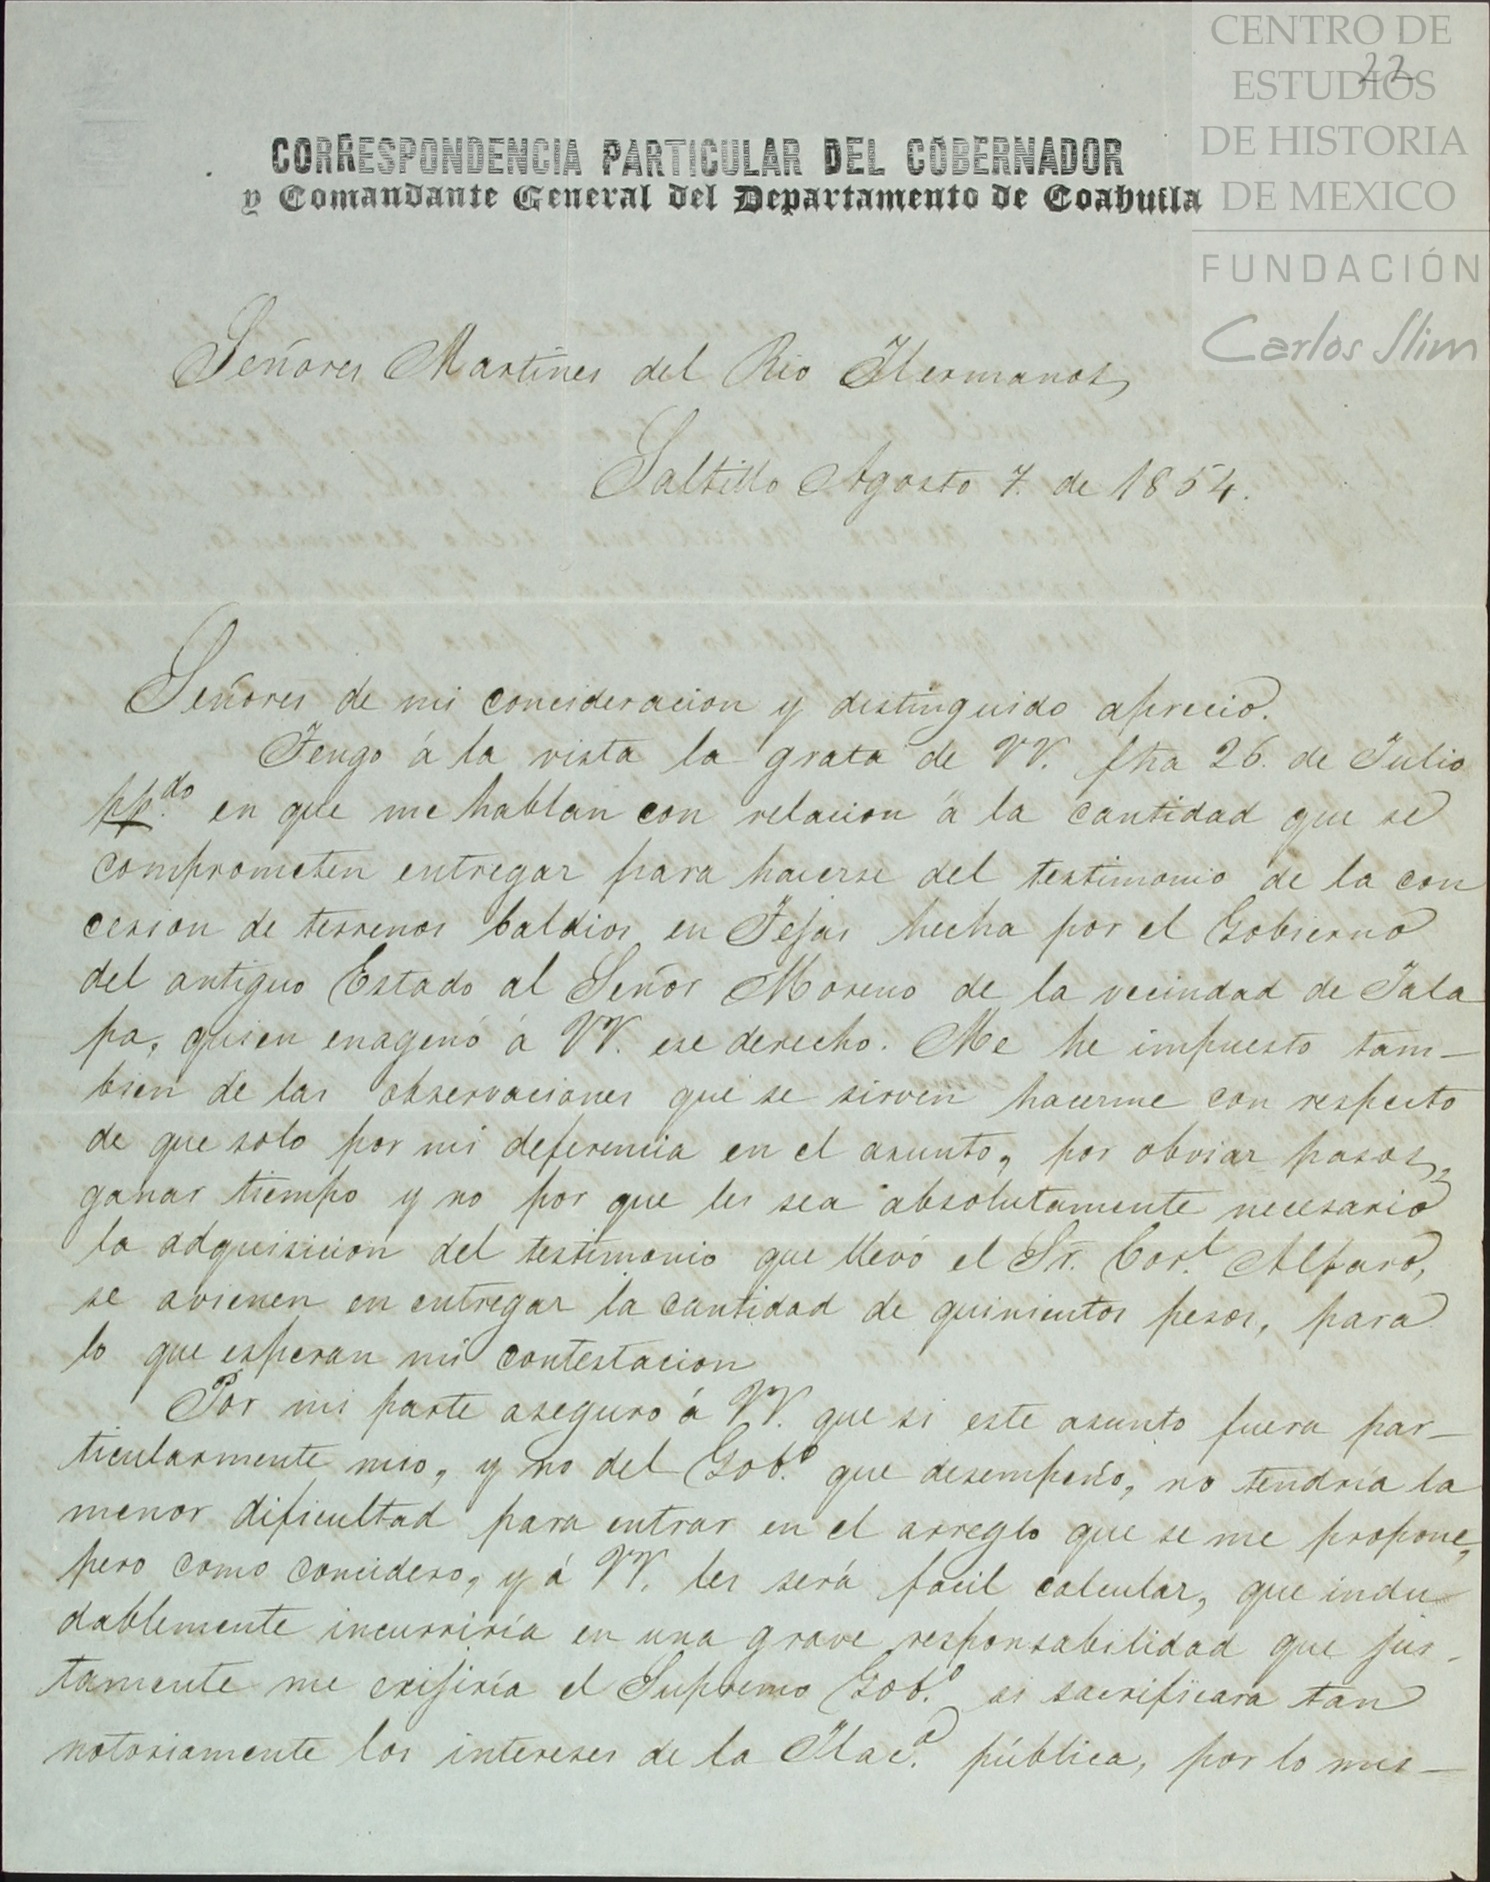 CENTRO DE
ESTUDIOS
DE HISTORIA
DE MEXICO
FUNDACIÓN
Carlos Slim
22
CORRESPONDENCIA PARTICULAR DEL GOBERNADOR
y Comandante General del Departamento de Coahuila
Señores Martines del Rio Hermanos,
Saltillo Agosto 7. de 1854.
Señores de mi concideracion y distinguido aprecio.
Tengo á la vista la grata de VV. fha 26. de Julio
pp.do en que me hablan con relacion á la cantidad que se
comprometen entregar para hacerse del testimonio de la con
cesion de terrenos baldios en Tejas hecha por el Gobierno
del antiguo Estado al Señor Moreno de la vecindad de Jala
pa, quien enagenó á VV. ese derecho. Me he impuesto tam-
bien de las observaciones que se sirven hacerme con respecto
de que solo por mi deferencia en el asunto, por obviar pasos,
ganar tiempo y no por que les sea absolutamente necesario
la adquisicion del testimonio que llevó el Sr. Cor.l Alfaro,
se avienen en entregar la cantidad de quinientos pesos, para
lo que esperan mi contestacion
Por mi parte aseguro á VV. que si este asunto fuera par-
ticularmente mio, y no del Gob.o que desempeño, no tendría la
menor dificultad para entrar en el arreglo que se me propone,
pero como concidero, y á VV. les será facil calcular, que indu
dablemente incurriría en una grave responsabilidad que jus-
tamente me exijiría el Supremo Gob.o si sacrificara tan
notoriamente los intereses de la Hac.a pública, por lo mis-